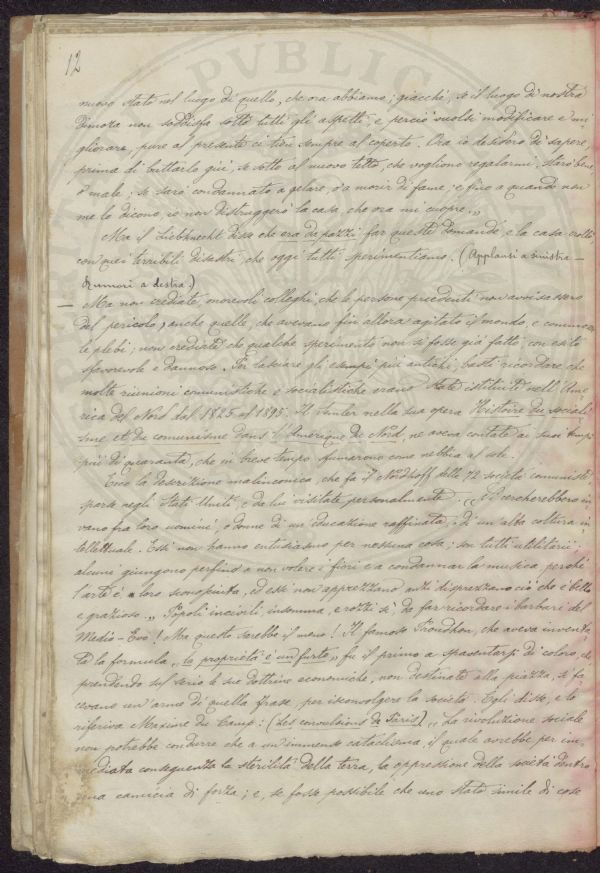 12
nuovo stato nel luogo di quello, che ora abbiamo; giacchè, se il luogo di nostra
dimora non soddisfa sotto tutti gli aspetti e perciò vuolsi modificare e mi-
gliorare, pure al presente ci tien sempre al coperto. Ora io desidero di sapere,
prima di buttarlo giù, se sotto al nuovo tetto, che vogliono regalarmi, starò bene
o male; se sarò condannato a gelare, o a morir di fame; e fino a quando non
me lo dicono, io non distruggerò la casa, che ora mi cuopre.„
Ma il Liebknecht disse che era da pazzi far queste domande, e la casa crollò
con quei terribili disastri, che oggi tutti sperimentiamo. (Applausi a sinistra —
Rumori a destra.)
— Ma non crediate, onorevoli colleghi, che le persone precedenti non avvisassero
del pericolo, anche quelle, che avevano fin allora agitato il mondo, e commosse
le plebi; non crediate che qualche sperimento non si fosse già fatto, con esito
sfavorevole e dannoso. Per lasciare gli esempi più antichi, basti ricordare che
molte riunioni comunistiche e socialistiche erano state istituite nell'Ame-
rica del Nord dal 1825 al 1895. Il Semler nella sua opera Histoire du sociali-
sme et du comunisme dans l'Amerique du Nord, ne aveva contate ai suoi tempi
più di quaranta, che in breve tempo sfumarono come nebbia al sole.
Ecco la descrizione malinconica, che fa il Nordhoff delle 72 società comuniste
sparse negli Stati Uniti, e da lui visitate personalmente. „ Si cercherebbero in-
vano fra loro uomini o donne di un'educazione raffinata, di un'alta coltura in-
tellettuale. Essi non hanno entusiasmo per nessuna cosa; son tutti utilitarii:
alcuni giungono perfino a non volere i fiori e a condannar la musica, perchè
l'arte è a loro sconosciuta, ed essi non apprezzano anzi disprezzano ciò che è bello
e grazioso.„ Popoli incivili, insomma, e rozzi sì, da far ricordare i barbari del
Medio-Evo! Ma questo sarebbe il meno! Il famoso Proudhon, che aveva inventa-
ta la formula „la proprietà è un furto„ fu il primo a spaventarsi di coloro, che
prendendo sul serio le sue dottrine economiche, non destinate alla piazza, si fa-
cevano un'arme di quella frase, per isconvolgere la società. Egli disse, e lo
riferiva Maxime du Camp: (Les convulsions de Paris) „La rivoluzione sociale
non potrebbe condurre che a un immenso cataclisma, il quale avrebbe per im-
mediata conseguenza la sterilità della terra, la oppressione della società dentro
una camicia di forza; e, se fosse possibile che uno stato simile di cose